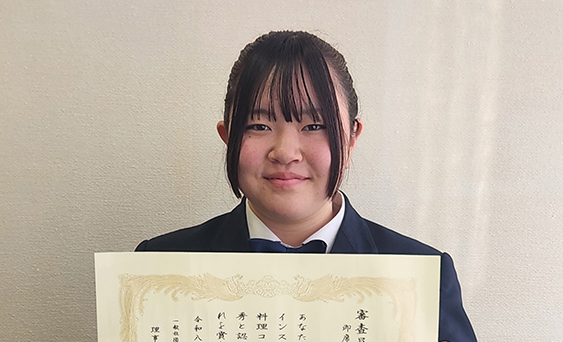 審査員
即席
あなた
インス
料理コ
秀と認
れを賞
令和八
一般社団
理事